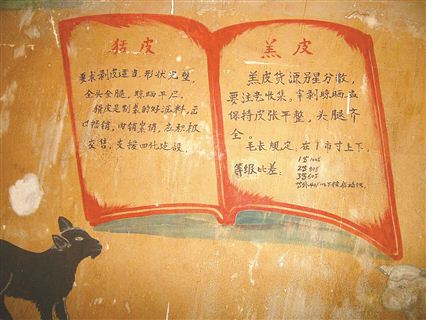 猺皮
要求剥皮适当,形状完整,
全头全腿,晾晒平展。
猺皮是制裘的好原料,出
口畅销,内销紧销,应积极
交售,支援四化建设。
羔皮
羔皮货源另星分散,
要注意收集。宰剥晾晒应
保持皮张平整,头腿齐
全。
毛长规定:在1市寸上下。
等级比差:
1等100%
2等80%
3等60%
等外40%以下按质论价。